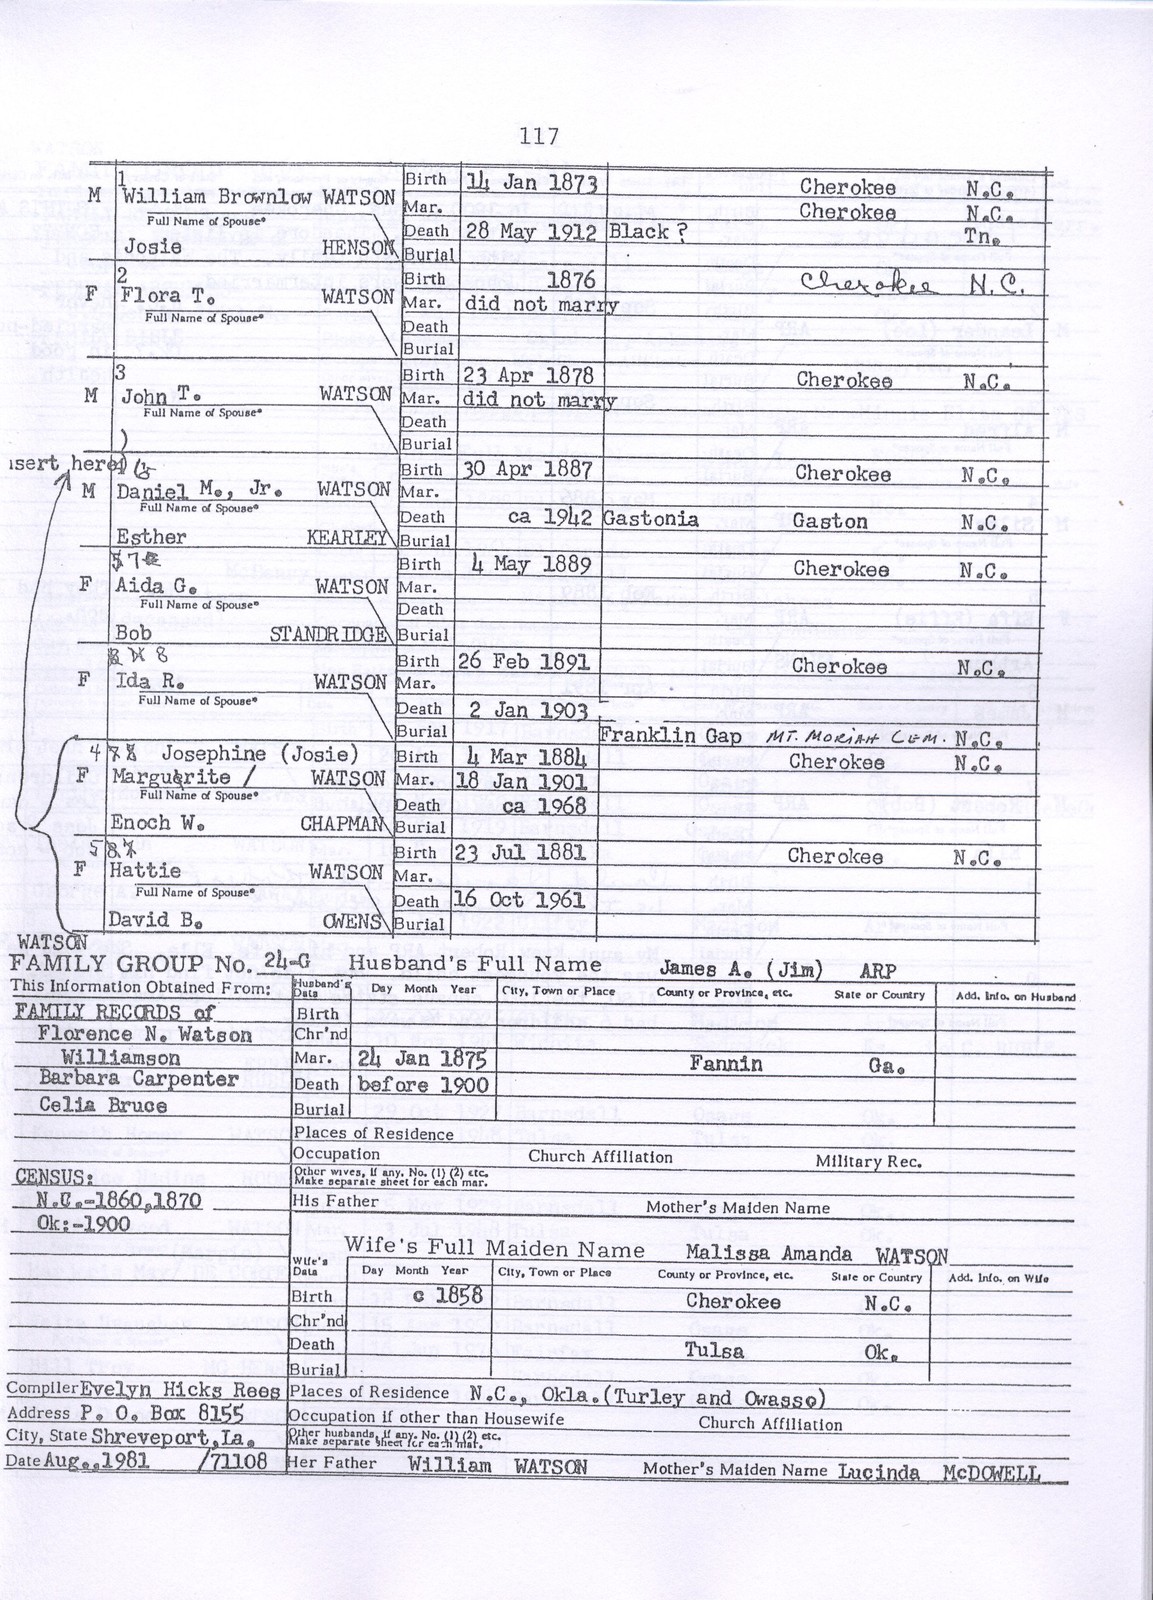 117
1
M William Brownlow WATSON Birth 14 Jan 1873 Cherokee N.C.
Full Name of Spouse* Mar. Cherokee N.C.
Josie HENSON Death 28 May 1912 Black ? Tn.
Burial
2
F Flora T. WATSON Birth 1876 Cherokee N.C.
Full Name of Spouse* Mar. did not marry
Death
Burial
3
M John T. WATSON Birth 23 Apr 1878 Cherokee N.C.
Full Name of Spouse* Mar. did not marry
Death
Burial
sert here
M Daniel M., Jr. WATSON Birth 30 Apr 1887 Cherokee N.C.
Full Name of Spouse* Mar.
Esther KEARLEY Death ca 1942 Gastonia Gaston N.C.
Burial
7
F Aida G. WATSON Birth 4 May 1889 Cherokee N.C.
Full Name of Spouse* Mar.
Death
Bob STANDRIDGE Burial
8
F Ida R. WATSON Birth 26 Feb 1891 Cherokee N.C.
Full Name of Spouse* Mar.
Death 2 Jan 1903
Burial Franklin Gap MT. MORIAH CEM. N.C.
4 Josephine (Josie) Birth 4 Mar 1884 Cherokee N.C.
F Marguerite / WATSON Mar. 18 Jan 1901
Full Name of Spouse* Death ca 1968
Enoch W. CHAPMAN Burial
5
F Hattie WATSON Birth 23 Jul 1881 Cherokee N.C.
Full Name of Spouse* Mar.
Death 16 Oct 1961
David B. OWENS Burial
WATSON
FAMILY GROUP No. 24-G Husband's Full Name James A. (Jim) ARP
This Information Obtained From: Husband's Data Day Month Year City, Town or Place County or Province, etc. State or Country Add. Info. on Husband
FAMILY RECORDS of Birth
Florence N. Watson Chr'nd
Williamson Mar. 24 Jan 1875 Fannin Ga.
Barbara Carpenter Death before 1900
Celia Bruce Burial
Places of Residence
Occupation Church Affiliation Military Rec.
CENSUS: Other wives, if any. No. (1) (2) etc.
Make separate sheet for each mar.
N.C.-1860,1870 His Father Mother's Maiden Name
Ok:-1900
Wife's Full Maiden Name Malissa Amanda WATSON
Wife's Data Day Month Year City, Town or Place County or Province, etc. State or Country Add. Info. on Wife
Birth c 1858 Cherokee N.C.
Chr'nd
Death Tulsa Ok.
Burial
Compiler Evelyn Hicks Rees Places of Residence N.C., Okla.(Turley and Owasso)
Address P. O. Box 8155 Occupation if other than Housewife Church Affiliation
City, State Shreveport,La. Other husbands, if any. No. (1) (2) etc.
Make separate sheet for each mar.
Date Aug.,1981 /71108 Her Father William WATSON Mother's Maiden Name Lucinda McDOWELL